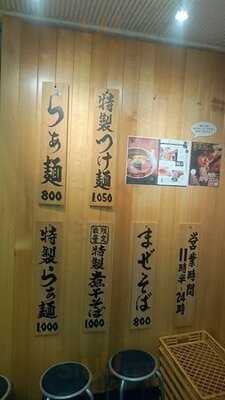 らぁ麺
800
特製つけ麺
1,050
特製らぁ麺
1,000
限定
数量
特製煮干そば
1,000
まぜそば
800
営業時間
11時半~24時